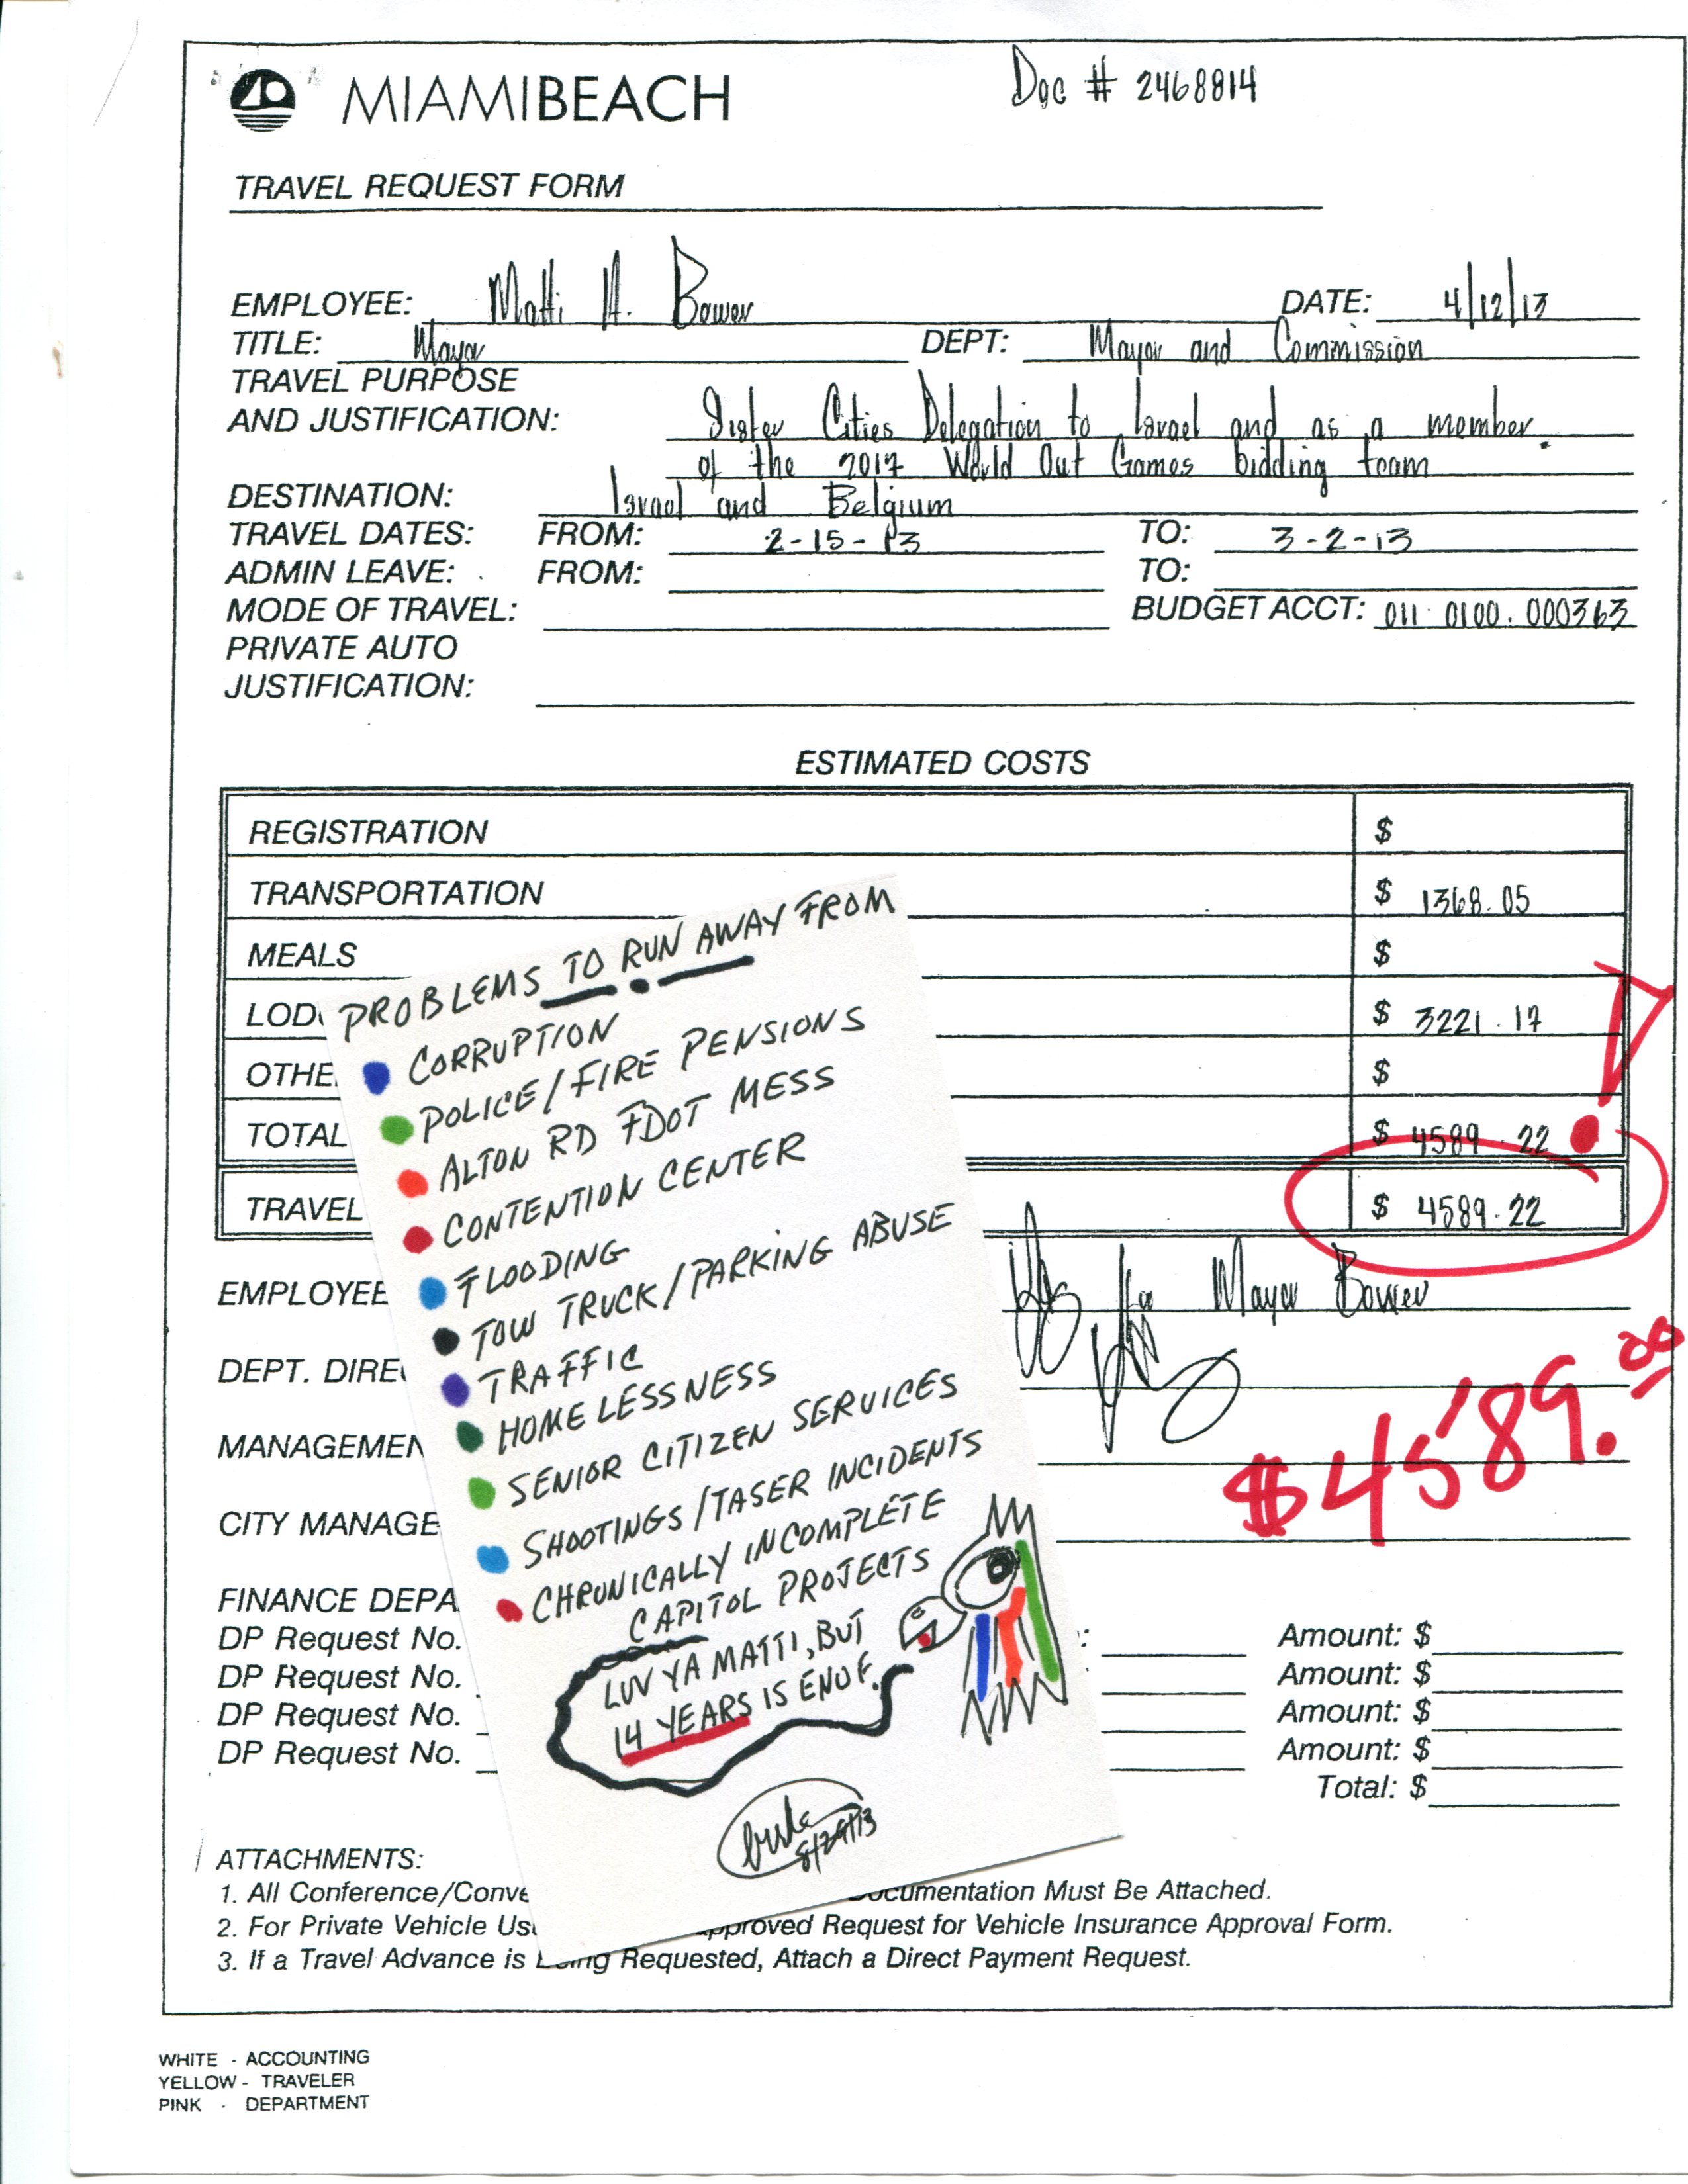 MIAMIBEACH
Doc # 2468814
TRAVEL REQUEST FORM
EMPLOYEE: Matti H. Bower DATE: 4/12/13
TITLE: Mayor DEPT: Mayor and Commission
TRAVEL PURPOSE
AND JUSTIFICATION: Sister Cities Delegation to Israel and as a member
of the 2017 World Out Games bidding team
DESTINATION: Israel and Belgium
TRAVEL DATES: FROM: 2-15-13 TO: 3-2-13
ADMIN LEAVE: FROM: TO:
MODE OF TRAVEL: BUDGET ACCT: 011 0100. 000363
PRIVATE AUTO
JUSTIFICATION:
ESTIMATED COSTS
REGISTRATION $
TRANSPORTATION $ 1368.05
MEALS $
LOD $ 3221.17
OTHE $
TOTAL $ 4589.22
TRAVEL $ 4589.22
EMPLOYEE Mayor Bower
DEPT. DIRE
MANAGEMEN
$4589.00
CITY MANAGE
FINANCE DEPA
DP Request No. : Amount: $
DP Request No. Amount: $
DP Request No. Amount: $
DP Request No. Amount: $
Total: $
PROBLEMS TO RUN AWAY FROM
CORRUPTION
POLICE/FIRE PENSIONS
ALTON RD FDOT MESS
CONTENTION CENTER
FLOODING
TOW TRUCK/PARKING ABUSE
TRAFFIC
HOMELESSNESS
SENIOR CITIZEN SERVICES
SHOOTINGS/TASER INCIDENTS
CHRONICALLY INCOMPLETE
CAPITOL PROJECTS
LUV YA MATTI, BUT
14 YEARS IS ENUF.
8/29/13
ATTACHMENTS:
1. All Conference/Conve ocumentation Must Be Attached.
2. For Private Vehicle Us pproved Request for Vehicle Insurance Approval Form.
3. If a Travel Advance is Being Requested, Attach a Direct Payment Request.
WHITE - ACCOUNTING
YELLOW - TRAVELER
PINK - DEPARTMENT